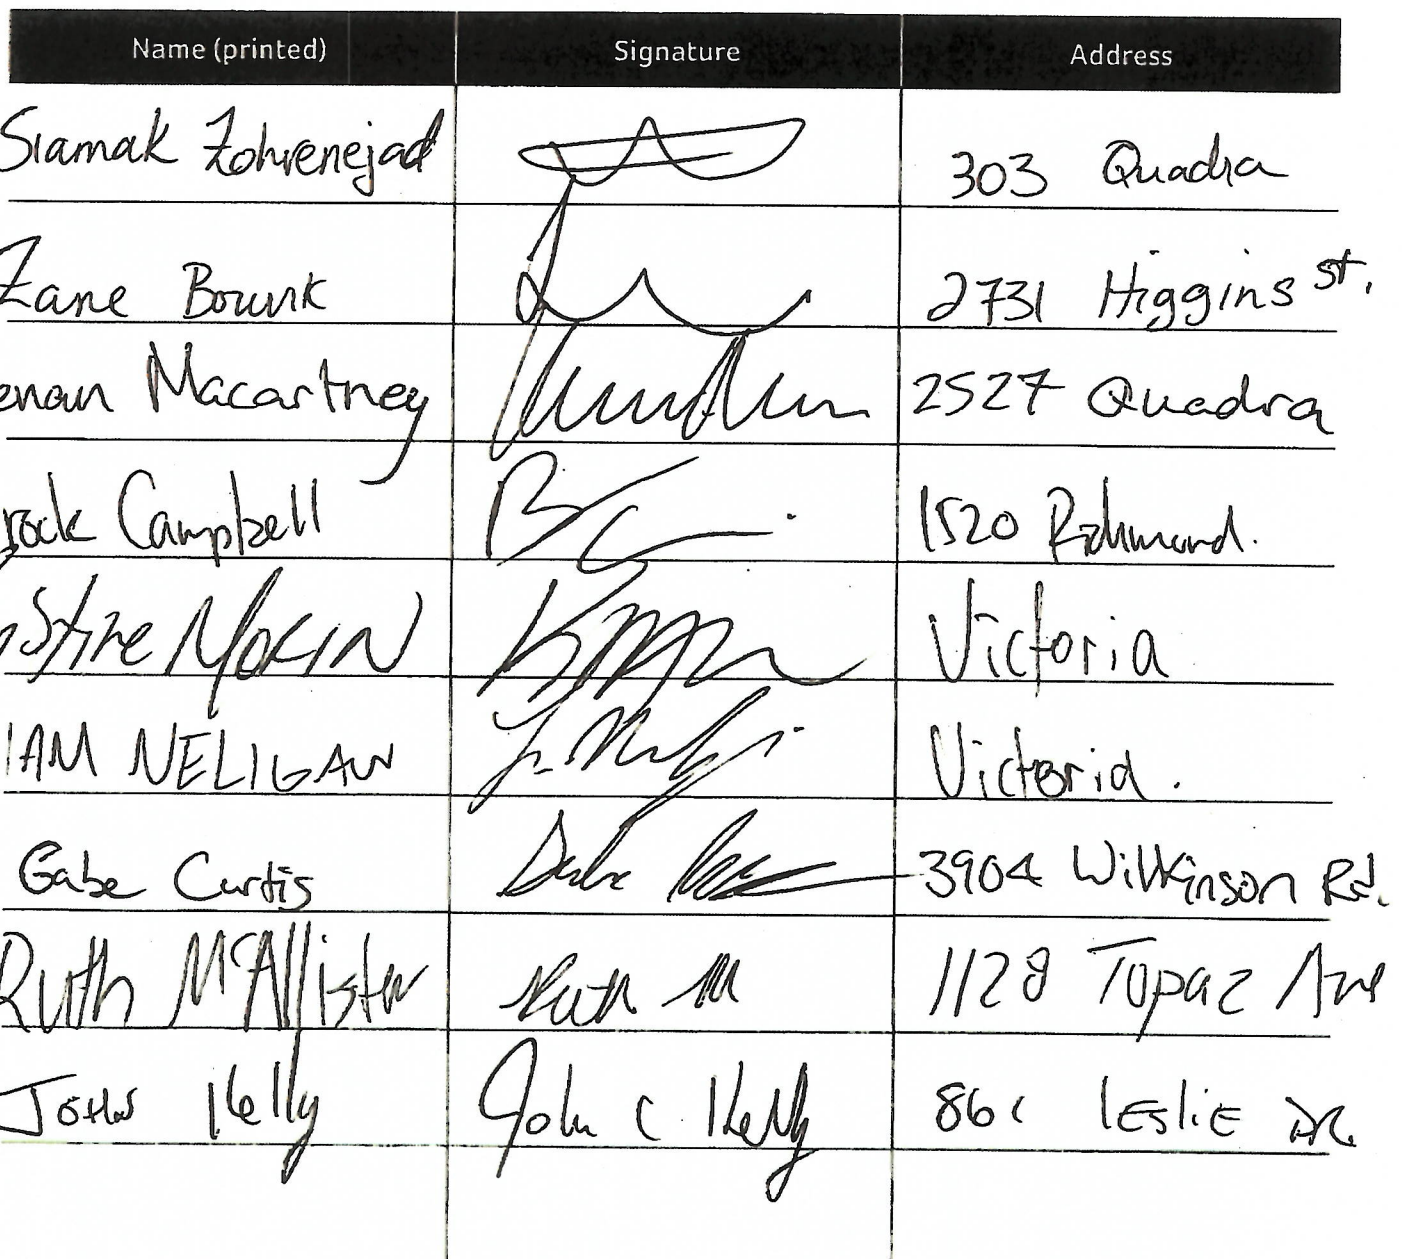 Name (printed) Signature Address
Siamak Zohrenejad 303 Quadra
Zane Bowik 2731 Higgins St.
enan Macartney 2527 Quadra
rock Campbell BC 1520 Richmond.
stine Morin Victoria
IAM NELIGAN Victoria.
Gabe Curtis 3904 Wilkinson Rd.
Ruth McAllister Ruth M 1128 Topaz Ave
John Kelly John C Kelly 861 Leslie DR.